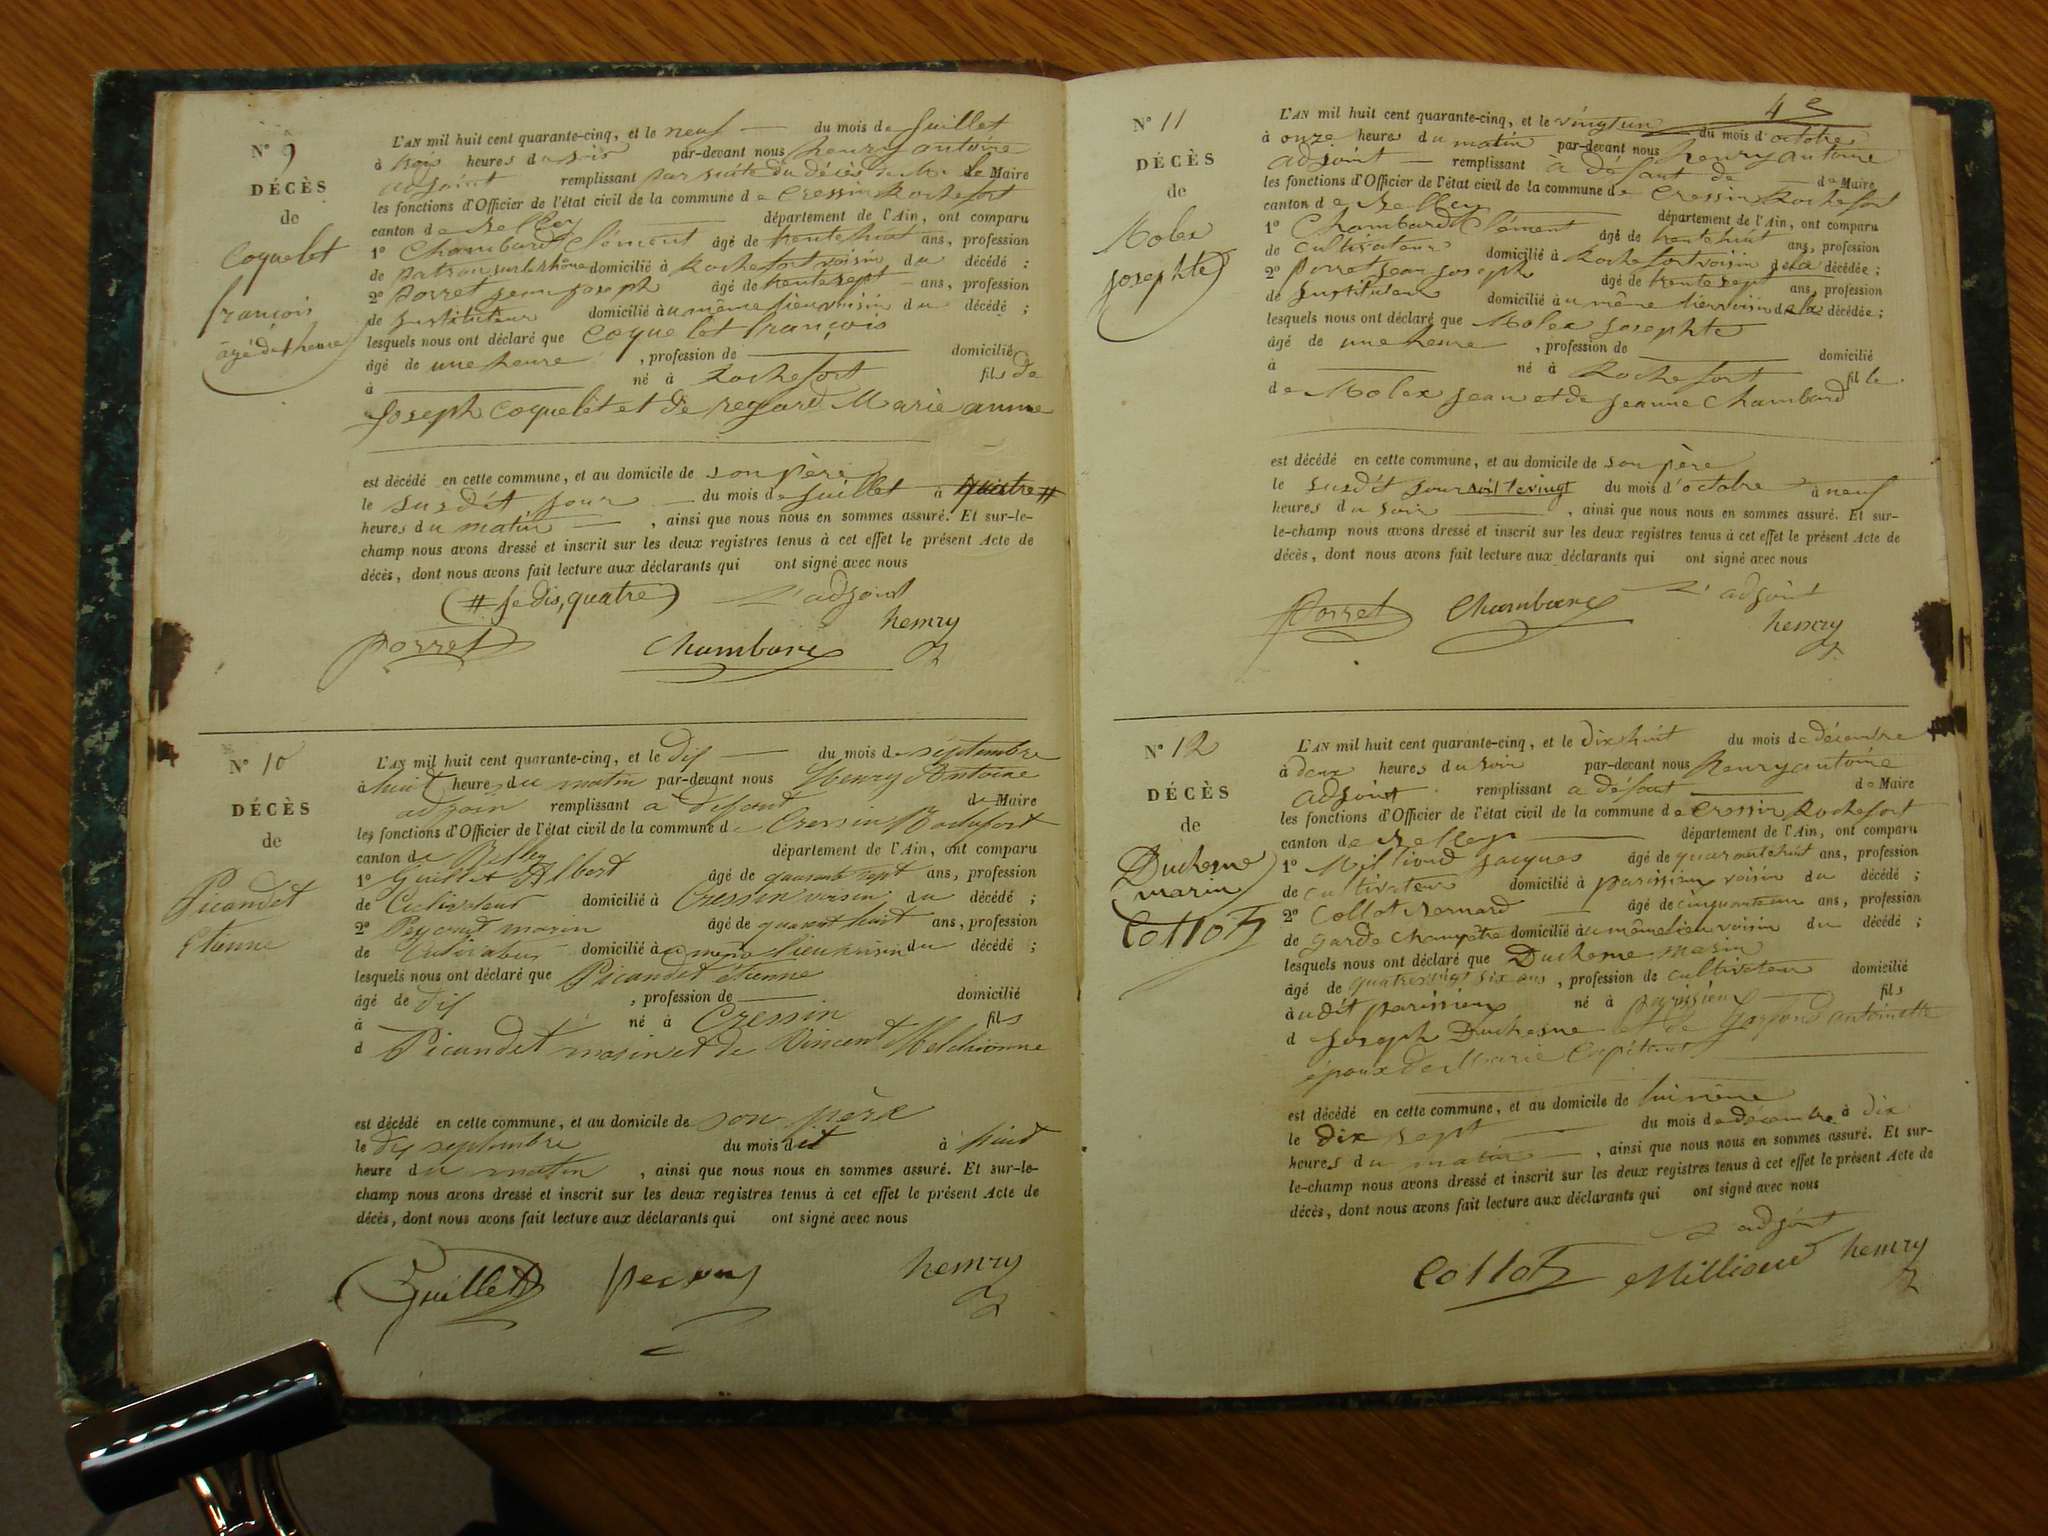 N° 9
DÉCÈS
de
Coquelet
françois
âgé d'1 heure
L'AN mil huit cent quarante-cinq, et le neuf du mois de Juillet
à trois heures du soir par-devant nous henry antoine
adjoint remplissant par suite du décès de Mr le Maire
les fonctions d'Officier de l'état civil de la commune de Cressin Rochefort
canton de Belley département de l'Ain, ont comparu
1° Chambard Clément âgé de trente huit ans, profession
de patron sur le rhône domicilié à Rochefort voisin du décédé ;
2° Porret jean joseph âgé de trente sept ans, profession
de instituteur domicilié au même lieu voisin du décédé ;
lesquels nous ont déclaré que Coquelet françois
âgé de une heure , profession de domicilié
à né à Rochefort fils de
Joseph Coquelet et de regard Marie anne
est décédé en cette commune, et au domicile de son père
le susdit jour du mois de Juillet à quatre #
heures du matin , ainsi que nous nous en sommes assuré. Et sur-le-
champ nous avons dressé et inscrit sur les deux registres tenus à cet effet le présent Acte de
décès, dont nous avons fait lecture aux déclarants qui ont signé avec nous
(# je dis, quatre) L'adjoint
Porret Chambard henry
N° 10
DÉCÈS
de
Picandet
Etienne
L'AN mil huit cent quarante-cinq, et le dix du mois de septembre
à huit heures du matin par-devant nous Henry Antoine
adjoin remplissant a defaut de Maire
les fonctions d'Officier de l'état civil de la commune de Cressin Rochefort
canton de Belley département de l'Ain, ont comparu
1° Guillet Albert âgé de quarante sept ans, profession
de Cultivateur domicilié à Cressin voisin du décédé ;
2° marin âgé de quarant huit ans, profession
de Cultivateur domicilié à u même lieu voisin du décédé ;
lesquels nous ont déclaré que Picandet étienne
âgé de dix , profession de domicilié
à né à Cressin fils
d Picandet marin et de Vincent Melchionne
est décédé en cette commune, et au domicile de son père
le dix septembre du mois dit à huit
heure du matin , ainsi que nous nous en sommes assuré. Et sur-le-
champ nous avons dressé et inscrit sur les deux registres tenus à cet effet le présent Acte de
décès, dont nous avons fait lecture aux déclarants qui ont signé avec nous
Guillet henry
4e
N° 11
DÉCÈS
de
Molex
josephte
L'AN mil huit cent quarante-cinq, et le vingt un du mois d'octobre
à onze heures du matin par-devant nous henry antoine
adjoint remplissant à défaut de de Maire
les fonctions d'Officier de l'état civil de la commune de Cressin Rochefort
canton de Belley département de l'Ain, ont comparu
1° Chambard Clément âgé de trente huit ans, profession
de cultivateur domicilié à Rochefort voisin de la décédée ;
2° Porret jean joseph âgé de trente sept ans, profession
de instituteur domicilié au même lieu voisin de la décédée ;
lesquels nous ont déclaré que Molex josephte
âgé de une heure , profession de domicilié
à né à Rochefort fille
de Molex jean et de jeanne Chambard
est décédé en cette commune, et au domicile de son père
le susdit jour soit le vingt du mois d'octobre à neuf
heures du soir , ainsi que nous nous en sommes assuré. Et sur-
le-champ nous avons dressé et inscrit sur les deux registres tenus à cet effet le présent Acte de
décès, dont nous avons fait lecture aux déclarants qui ont signé avec nous
Porret Chambard L'adjoint
henry
N° 12
DÉCÈS
de
Duchesne
marin
Collot
L'AN mil huit cent quarante-cinq, et le dix huit du mois de décembre
à deux heures du soir par-devant nous henry antoine
adjoint remplissant a défaut de Maire
les fonctions d'Officier de l'état civil de la commune de Cressin Rochefort
canton de Belley département de l'Ain, ont comparu
1° Milliond jacques âgé de quarante huit ans, profession
de cultivateur domicilié à parissieux voisin du décédé ;
2° Collot Bernard âgé de cinquante un ans, profession
de garde champêtre domicilié au même lieu voisin du décédé ;
lesquels nous ont déclaré que Duchesne marin
âgé de quatre vingt six ans , profession de cultivateur domicilié
à udit parissieux né à parissieux fils
d joseph Duchesne et de antoinette
époux de Marie Capitant
est décédé en cette commune, et au domicile de lui même
le dix sept du mois de décembre à dix
heures du matin , ainsi que nous nous en sommes assuré. Et sur-
le-champ nous avons dressé et inscrit sur les deux registres tenus à cet effet le présent Acte de
décès, dont nous avons fait lecture aux déclarants qui ont signé avec nous
L'adjoint
Collot Milliond henry